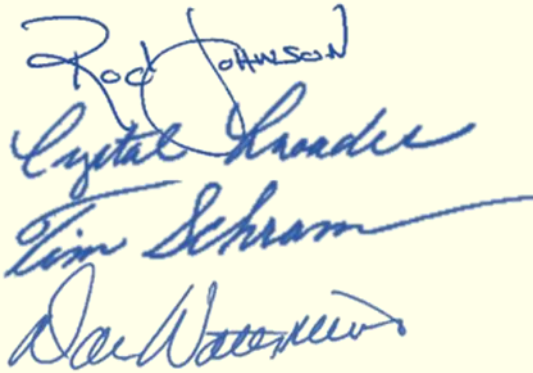 Rod Johnson
Crystal Rhoades
Tim Schram
Dan Watermeier